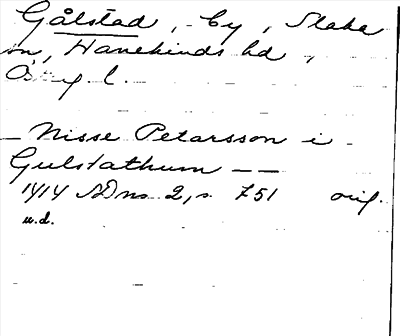 Gålstad, by, Slaka
sn, Hanekinds hd,
Östg l.
— Nisse Petarsson i
Gulstathum — —
1414 SDns 2, s. 751 orig.
u.d.